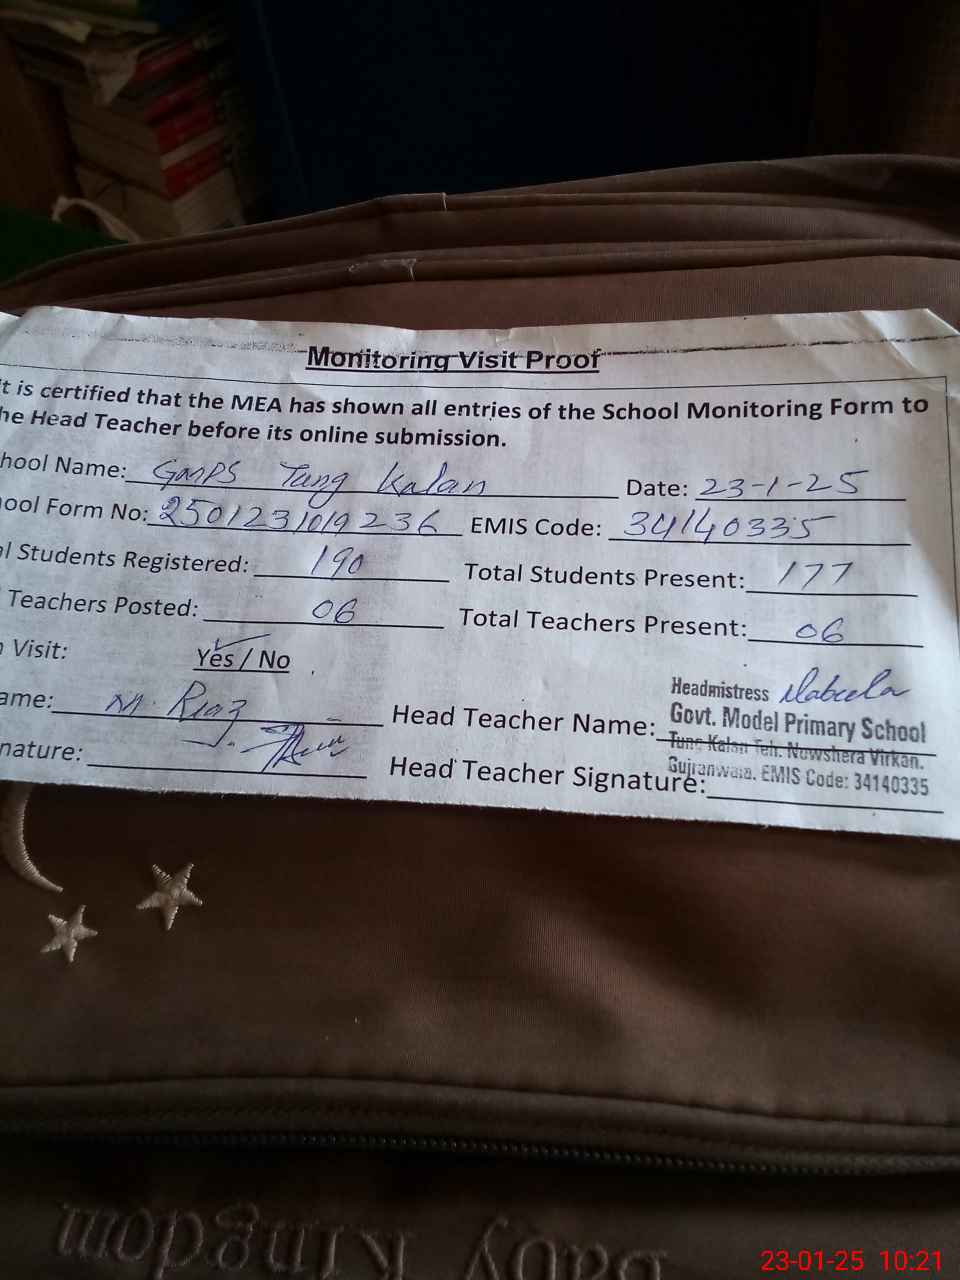 Monitoring Visit Proof
t is certified that the MEA has shown all entries of the School Monitoring Form to
he Head Teacher before its online submission.
hool Name: GMPS Tung Kalan Date: 23-1-25
ool Form No: 2501231019236 EMIS Code: 34140335
l Students Registered: 190 Total Students Present: 177
Teachers Posted: 06 Total Teachers Present: 06
Visit: Yes / No
ame: M. Riaz Head Teacher Name:
nature: Head Teacher Signature:
Headmistress Nabeela
Govt. Model Primary School
Tung Kalan Teh. Nowshera Virkan.
Gujranwala. EMIS Code: 34140335
Baby Kingdom
23-01-25 10:21